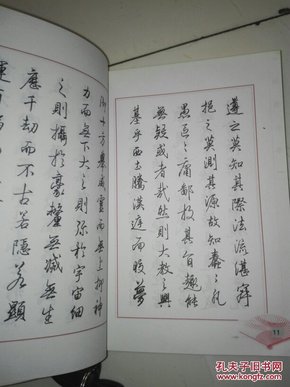 御十方舉威靈而無上抑神
力而無下大之則彌於宇宙細
之則攝於豪釐無滅無生
歷千劫而不古若隱若顯
運百福
遵之莫知其際法流湛寂
挹之莫測其源故知蠢蠢凡
愚區區庸鄙投其旨趣能
無疑或者哉然則大教之興
基乎西土騰漢庭而皎夢
11
孔夫子旧书网